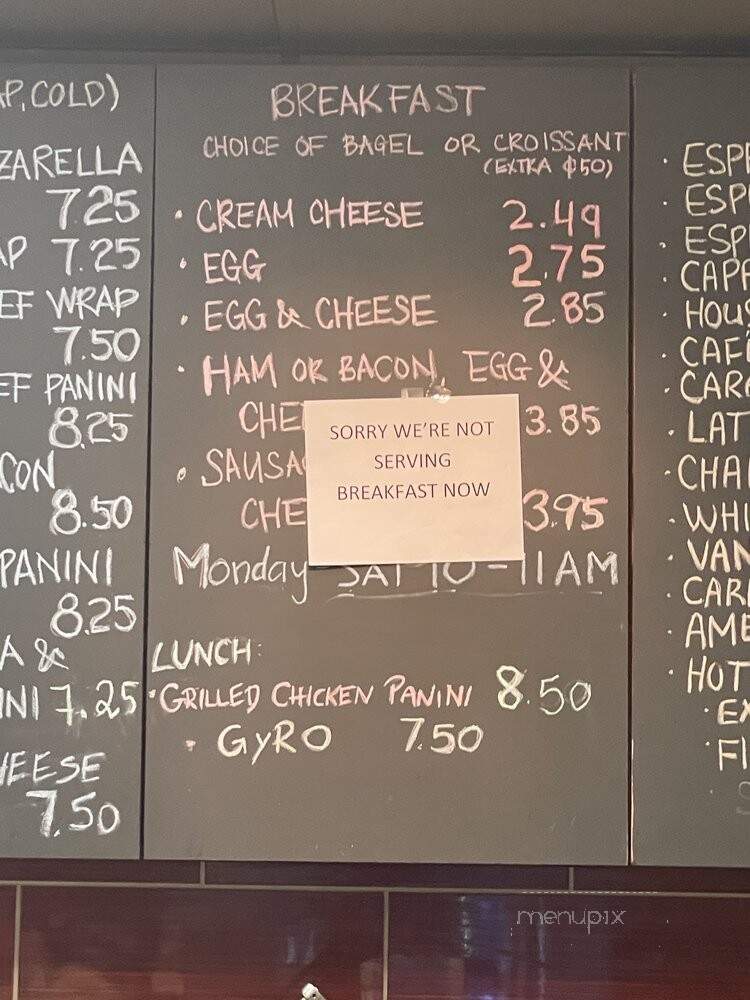 AP, COLD)
ZARELLA
7.25
AP 7.25
EF WRAP
7.50
EF PANINI
8.25
CON
8.50
PANINI
8.25
A &
INI 7.25
HEESE
7.50
BREAKFAST
CHOICE OF BAGEL OR CROISSANT
(EXTRA $50)
• CREAM CHEESE 2.49
• EGG 2.75
• EGG & CHEESE 2.85
• HAM OR BACON, EGG &
CHE 3.85
• SAUSA
CHE 3.95
SORRY WE'RE NOT
SERVING
BREAKFAST NOW
Monday SAT 10-11AM
LUNCH:
• GRILLED CHICKEN PANINI 8.50
• GYRO 7.50
• ESP
• ESP
• ESP
• CAPP
• HOUS
• CAFE
• CAR
• LAT
• CHAI
• WHI
• VAN
• CAR
• AME
• HOT
• EX
• FI
menupix